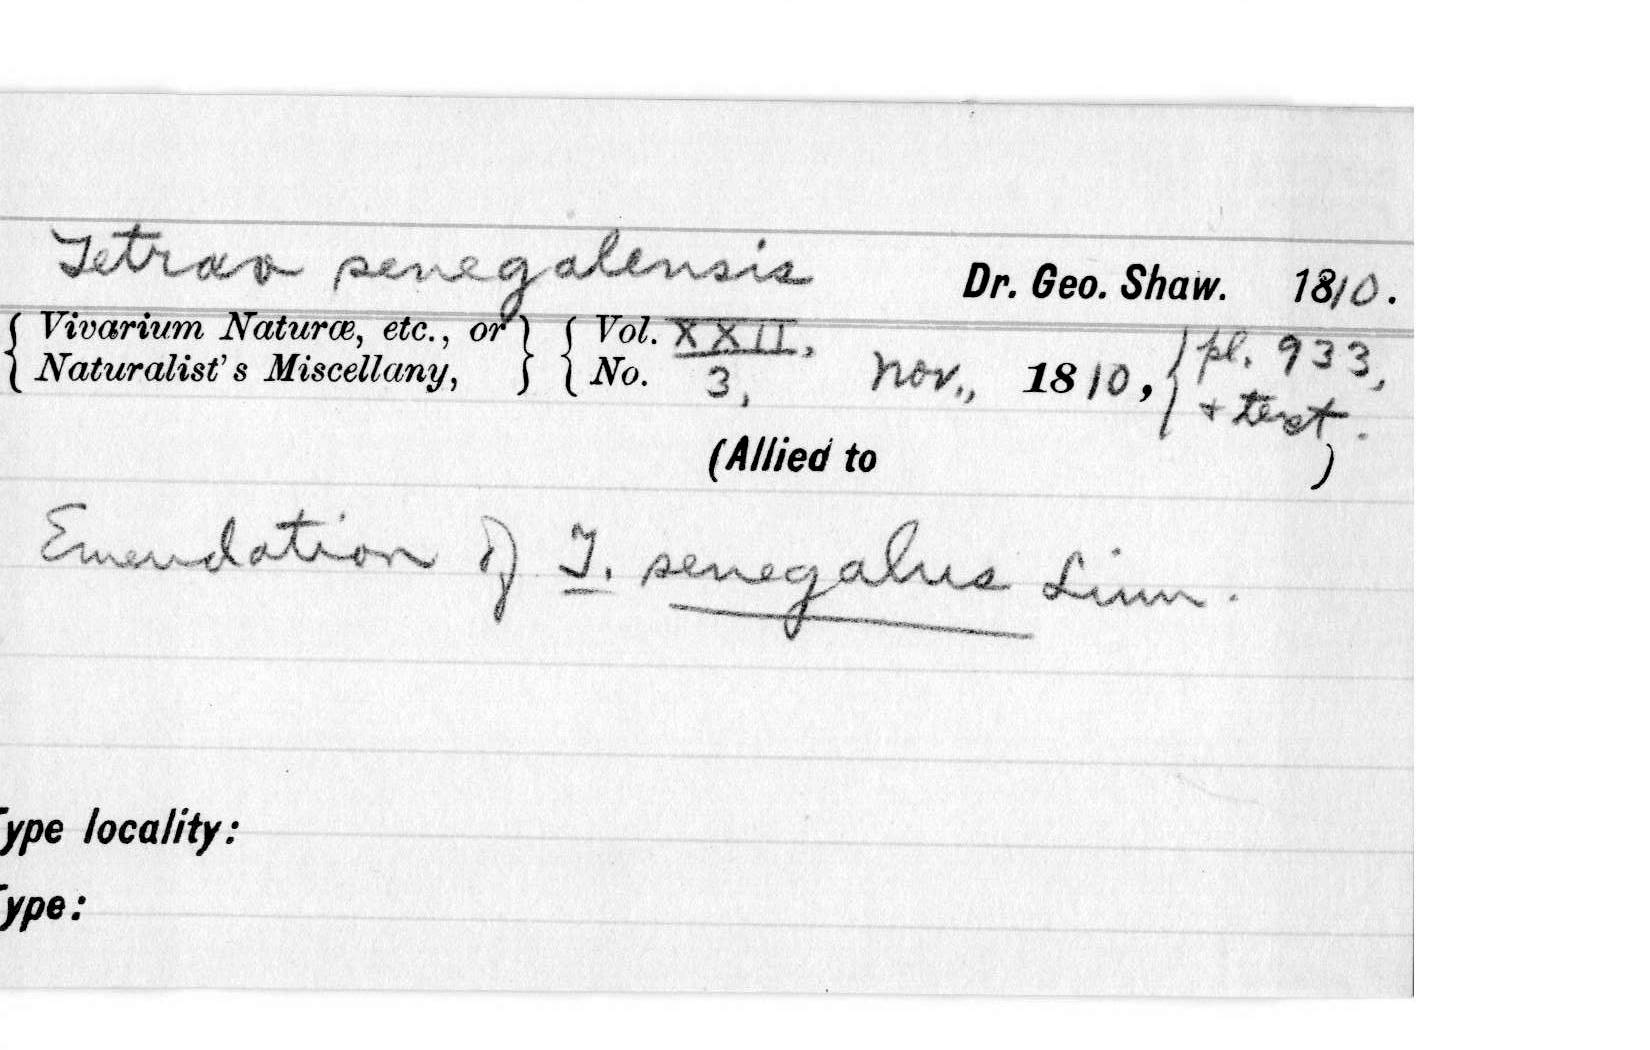 Tetrao senegalensis Dr. Geo. Shaw. 1810.
{ Vivarium Naturæ, etc., or } { Vol. XXII, { pl. 933,
{ Naturalist's Miscellany, } { No. 3, Nov., 1810, { + text.
(Allied to )
Emendation of T. senegalus Linn.
Type locality:
Type: